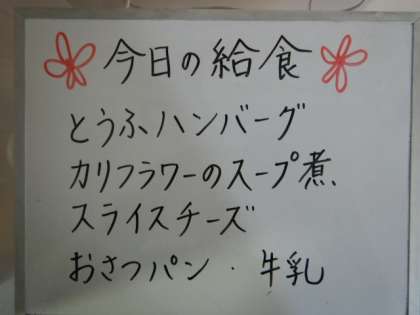 今日の給食
とうふハンバーグ
カリフラワーのスープ煮
スライスチーズ
おさつパン・牛乳